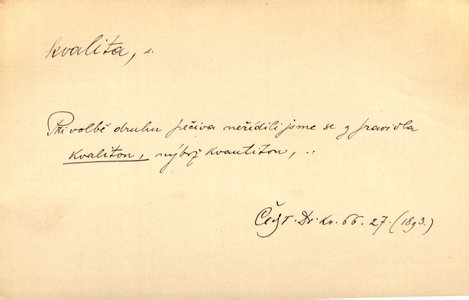 kvalita, s.
Při volbě druhu pečiva neřídili jsme se z pravidla
kvalitou, nýbrž kvantitou, ..
Čech Dr. kv. 66. 27. (1893.)